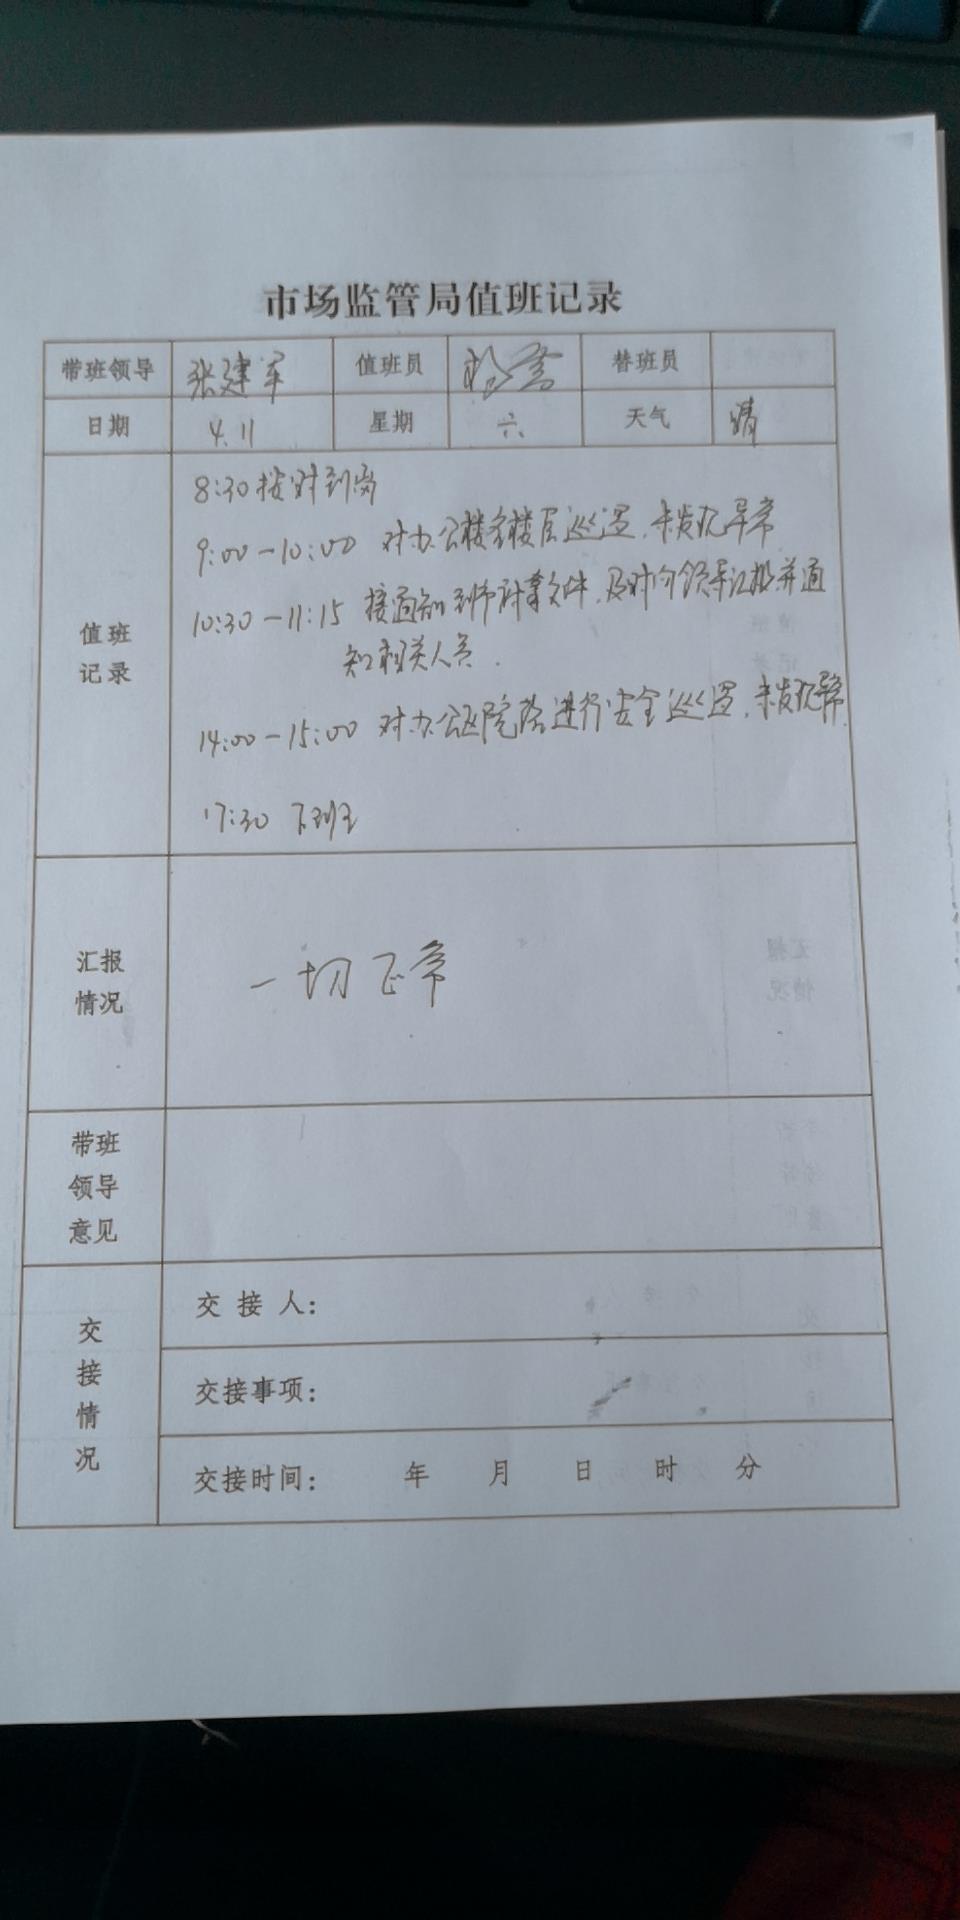 市场监管局值班记录
带班领导 张建军 值班员 杨 替班员
日期 4.11 星期 六 天气 晴
8:30 按时到岗
9:00-10:00 对办公楼各楼层巡逻,未发现异常
10:30-11:15 接通知到市 拿文件,及时向领导汇报并通
值班
记录
知相关人员.
14:00-15:00 对办公区院落进行安全巡逻,未发现异常.
17:30 下班
汇报
情况
一切正常
带班
领导
意见
交接情况
交接人:
交接事项:
交接时间: 年 月 日 时 分